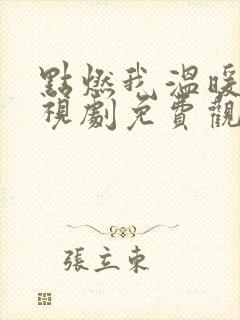 點燃我溫暖
視劇免費觀
張立東